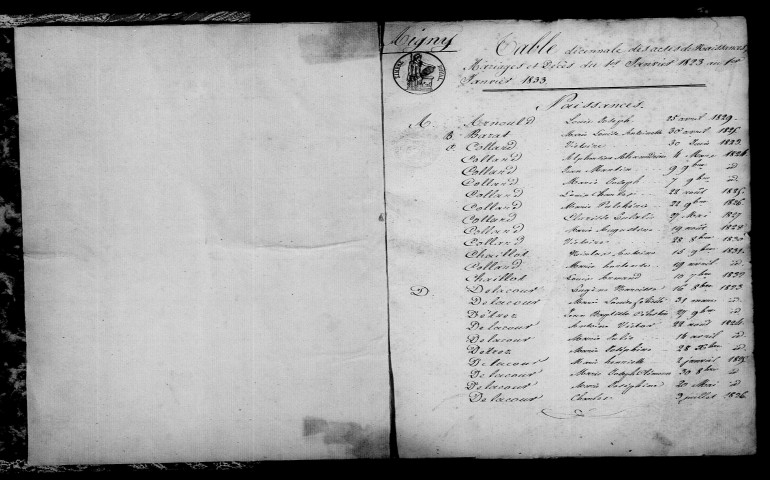 Migny
Table décennale des actes de Naissances,
Mariages et Décès du 1er Janvier 1823 au 1er
Janvier 1833.
Naissances.
A. Arnould Louis Joseph 25 avril 1829.
B. Bazat Marie Louise 30 avril 1825.
C. Colland Victoire 30 Juin 1823.
Colland Alphonse Alexandre 4 Mars 1824
Colland Jean Martin 9 9bre id
Colland Marie Joseph 7 9bre id
Colland Louis Charles 22 août 1825.
Colland Marie 22 9bre 1826.
Colland 27 Mai 1827
Colland Marie Augustine 19 août 1828
Colland Victoire 28 8bre 1830
Chaillot Nicolas Antoine 15 9bre 1831.
Colland Marie 19 avril id
Chaillot Louis Armand 10 7bre 1832
D. Delacour Eugène Narcisse 16 8bre 1823
Delacour Marie 31 mars id
Détrez Jean Baptiste 27 9bre id
Delacour Antoine Victor 22 août 1824.
Delacour Marie Julie 16 avril id
Detrez Marie Joséphine 28 Xbre id
Delacour Marie henriette 2 janvier 1825
Delacour Marie 30 8bre id
Delacour Marie Joséphine 20 Mai id
Delacour Charles 3 juillet 1826